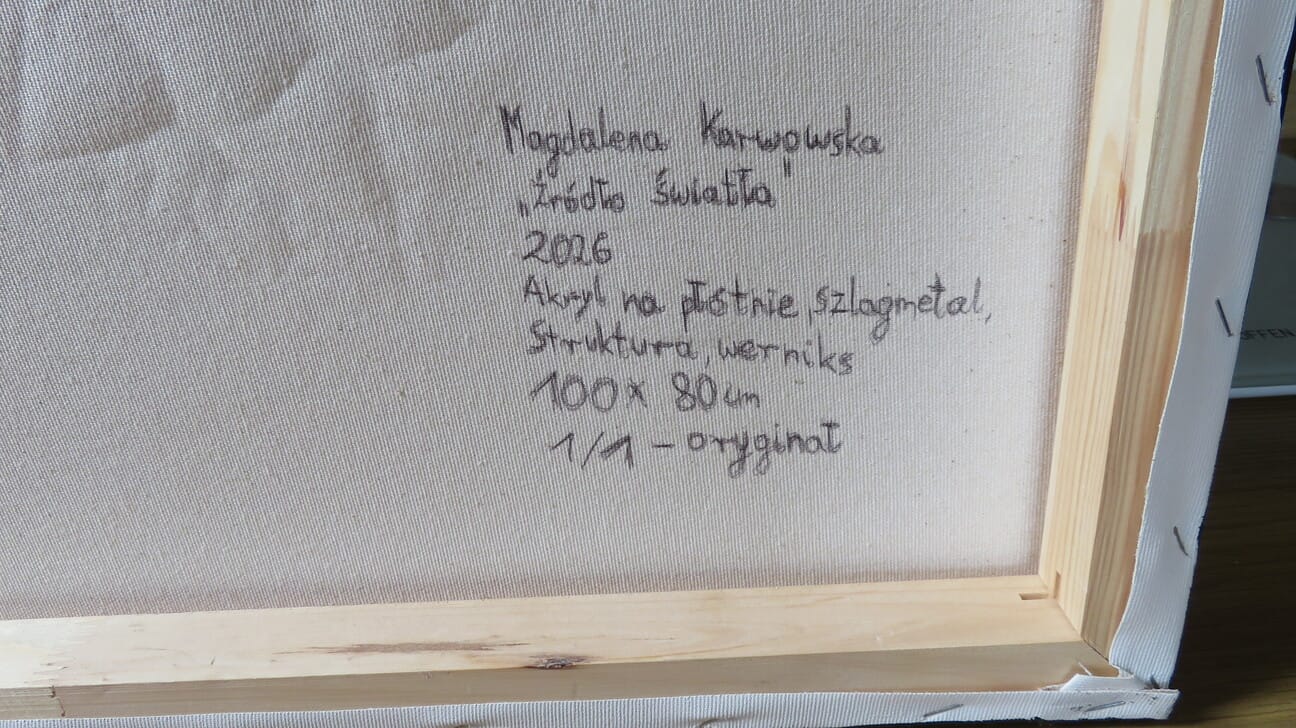 Magdalena Karwowska
„Źródło światła"
2026
Akryl na płótnie, szlagmetal,
Struktura, werniks
100 x 80 cm
1/1 - oryginał
OFFEN